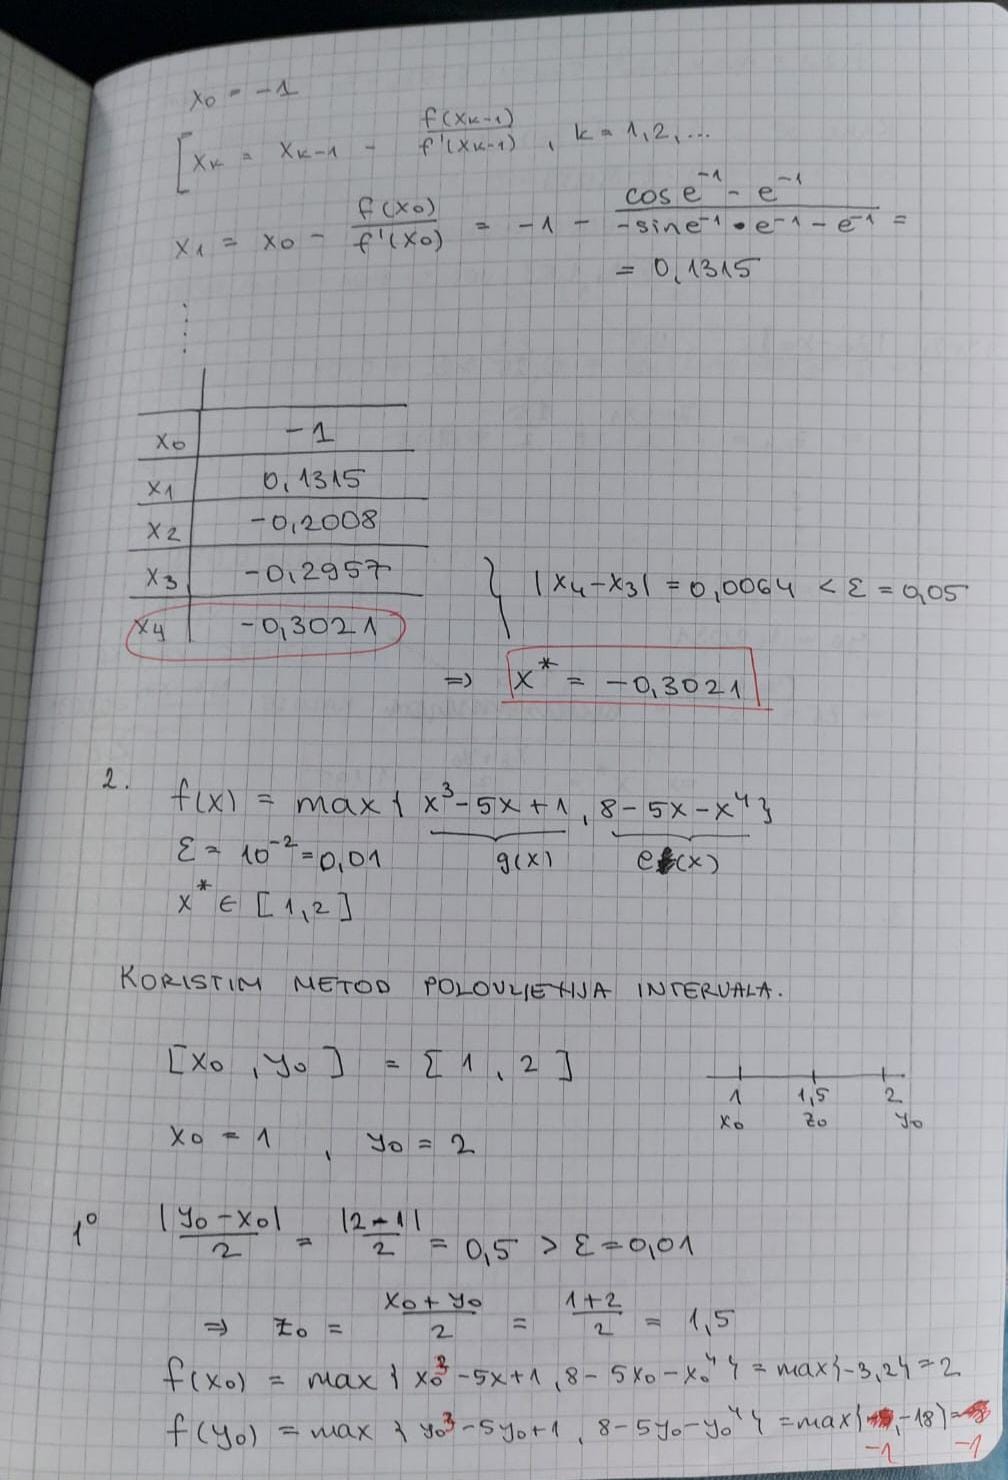 x₀ = -1
[ xₖ = xₖ₋₁ - f(xₖ₋₁)/f'(xₖ₋₁) , k = 1,2,...
x₁ = x₀ - f(x₀)/f'(x₀) = -1 - (cos e⁻¹ - e⁻¹)/(-sin e⁻¹ • e⁻¹ - e⁻¹) =
= 0,1315
⋮
x₀ | -1
x₁ | 0,1315
x₂ | -0,2008
x₃ | -0,2957
x₄ | -0,3021
} |x₄-x₃| = 0,0064 < ε = 0,05
⇒ x* = -0,3021
2. f(x) = max{ x³-5x+1 , 8-5x-x⁴ }
g(x) e(x)
ε = 10⁻² = 0,01
x* ∈ [1,2]
KORISTIM METOD POLOVLJENJA INTERVALA.
[x₀ , y₀] = [1 , 2]
1 1,5 2
x₀ z₀ y₀
x₀ = 1 , y₀ = 2
1° |y₀-x₀|/2 = |2-1|/2 = 0,5 > ε = 0,01
⇒ z₀ = (x₀+y₀)/2 = (1+2)/2 = 1,5
f(x₀) = max{ x₀³-5x+1 , 8-5x₀-x₀⁴ } = max{-3,2} = 2
f(y₀) = max{ y₀³-5y₀+1 , 8-5y₀-y₀⁴ } = max{-1, -18} = -1